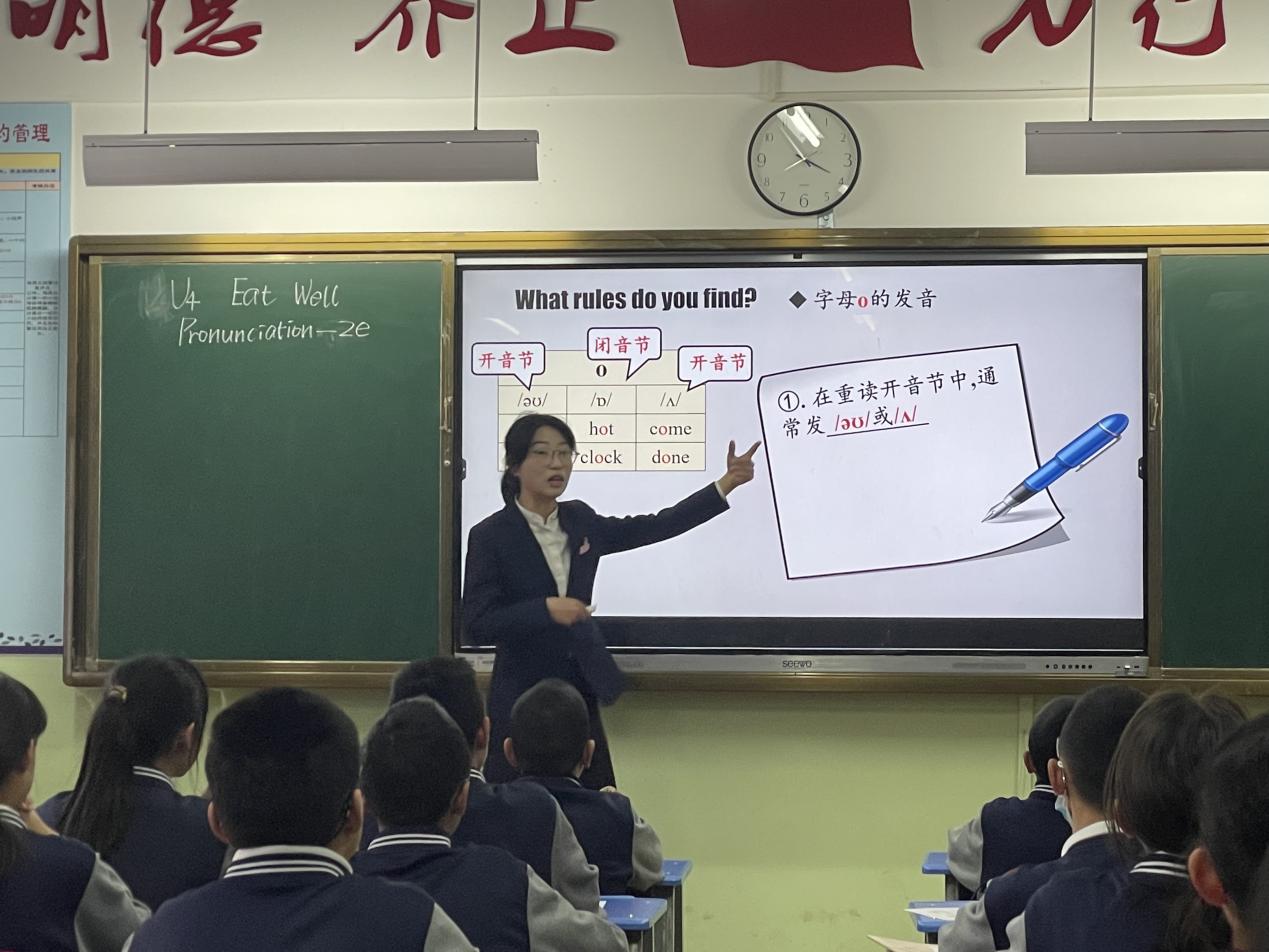 明德 齐 正 力行
的管理
考核办法
U4 Eat Well
Pronunciation—2e
What rules do you find?
◆ 字母o的发音
开音节
闭音节
开音节
o
/əʊ/ /ɒ/ /ʌ/
hot come
clock done
①. 在重读开音节中,通
常发 /əʊ/或/ʌ/
1
10
9 3
8 4
7 6 5
seewo